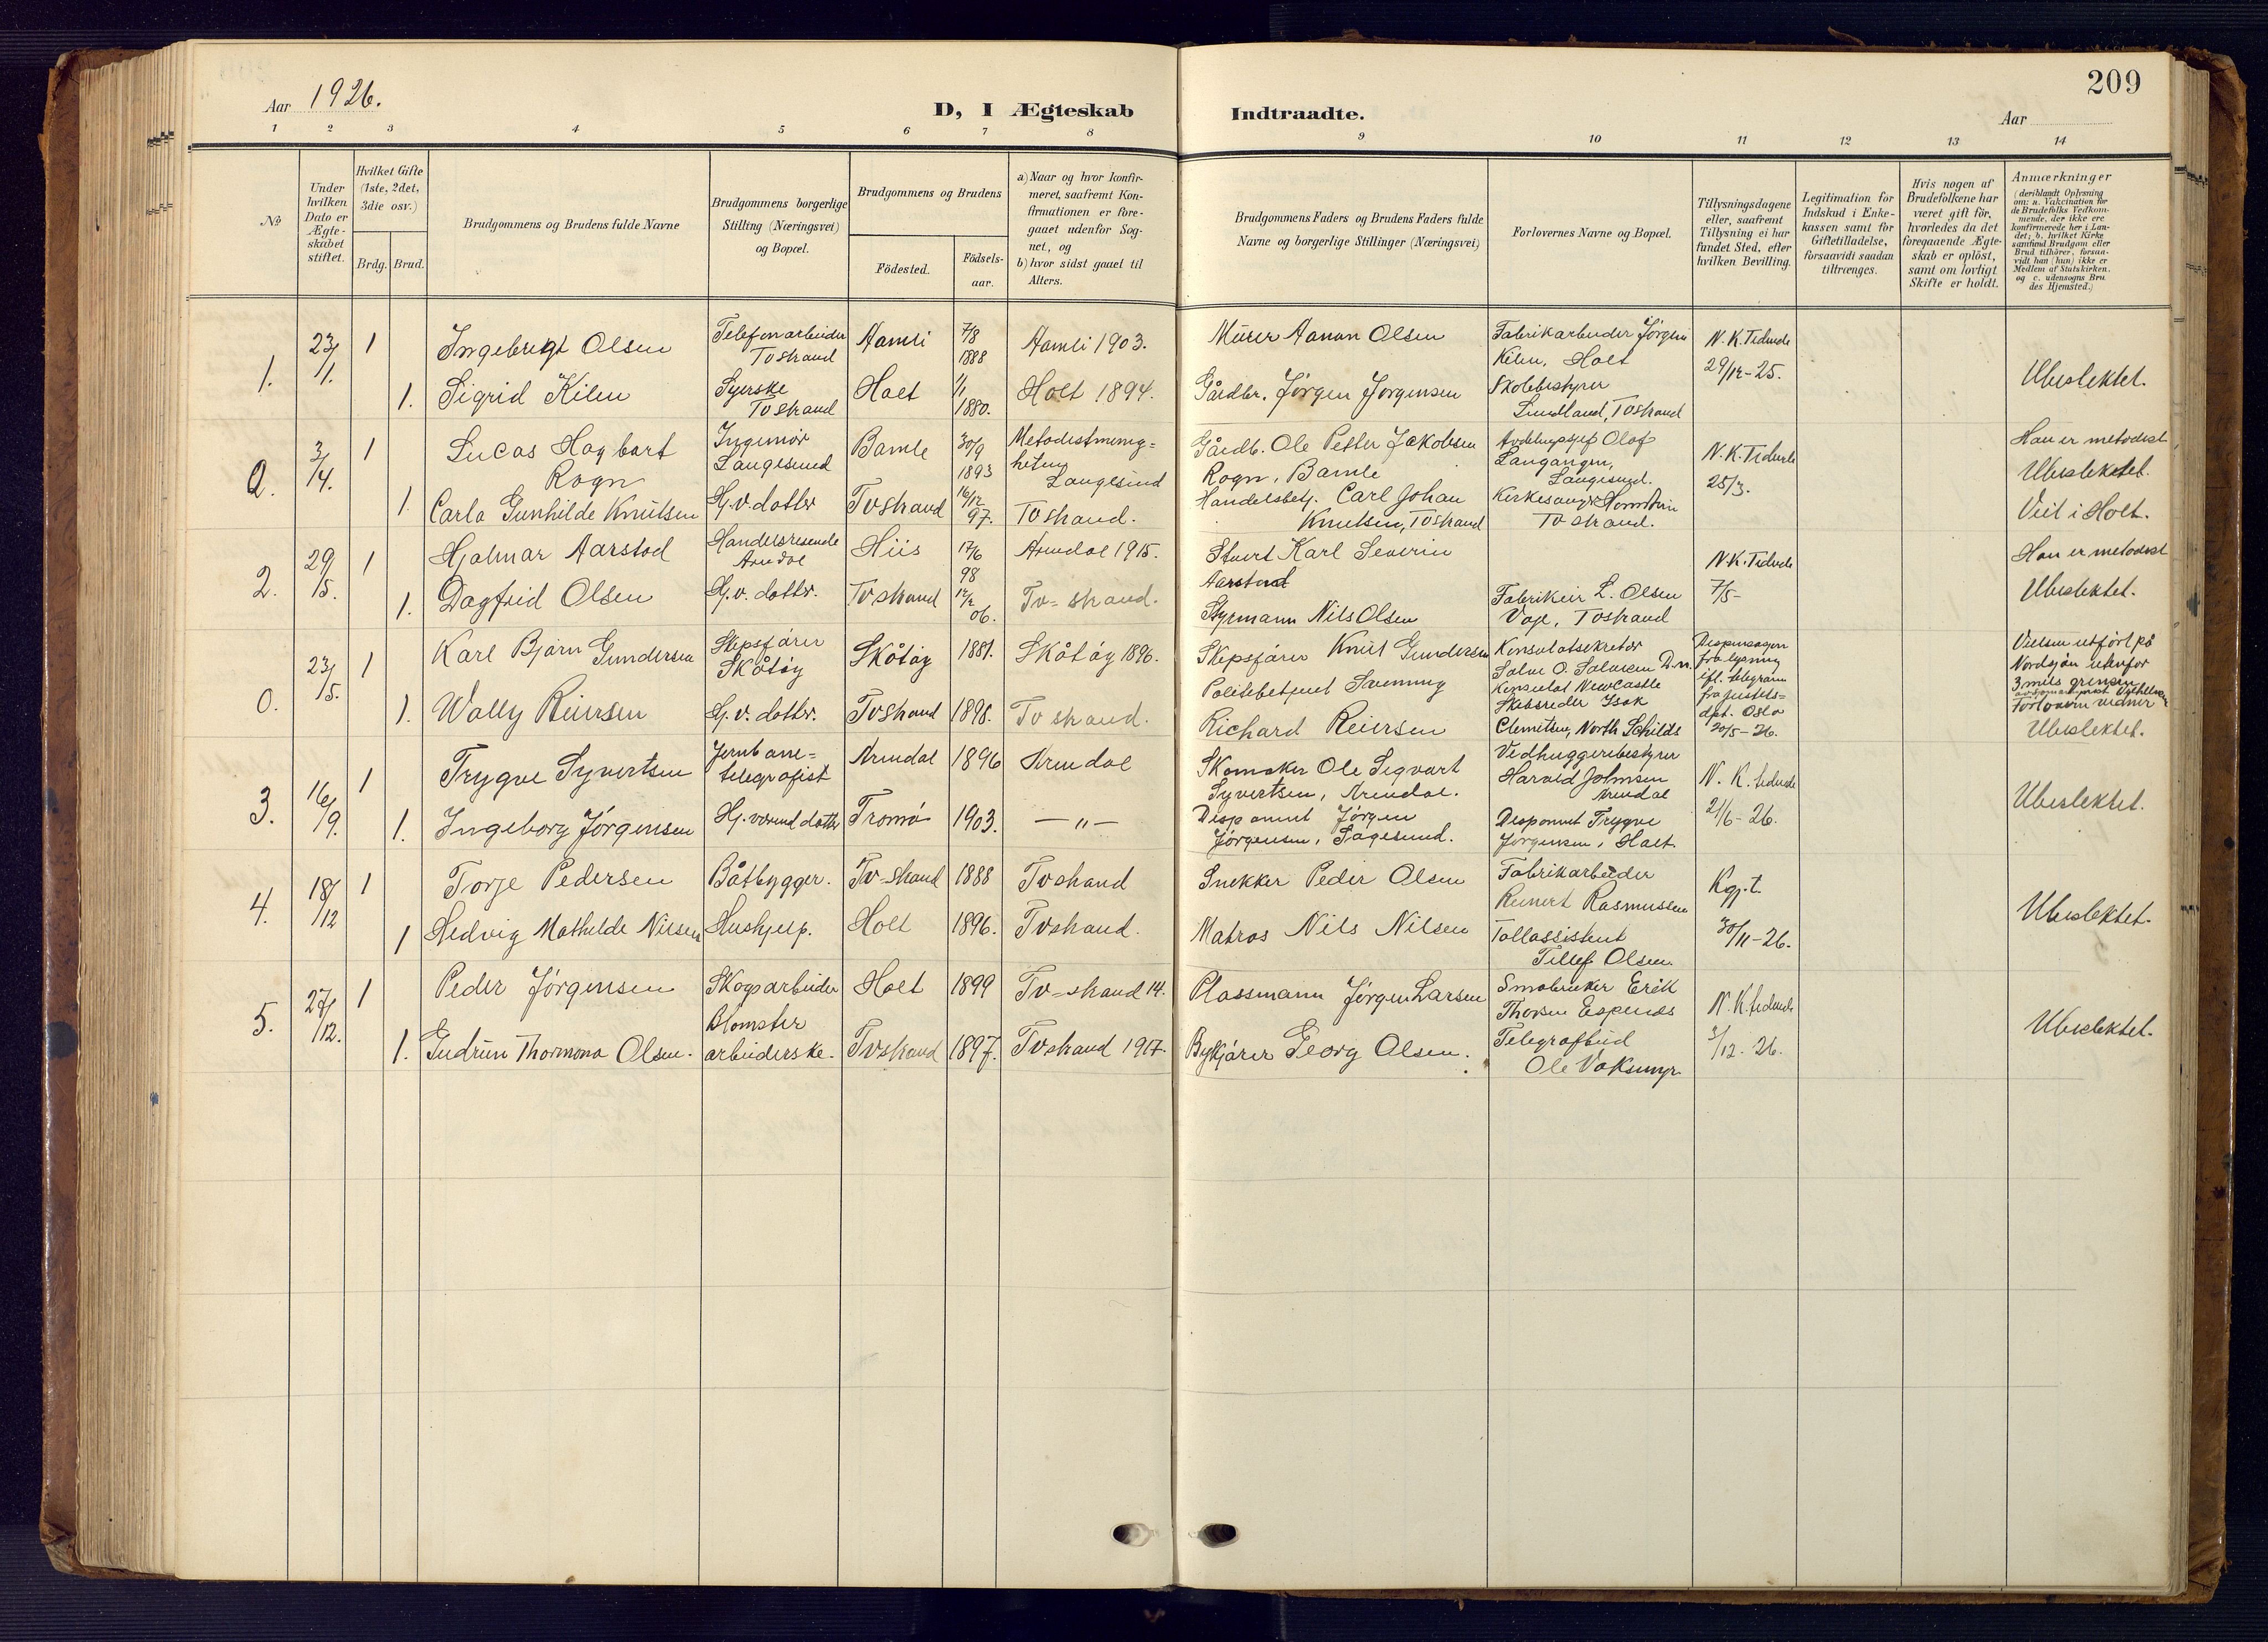 209
Aar 1926.
D, I Ægteskab Indtraadte.
Aar
1 2 3 4 5 6 7 8 9 10 11 12 13 14
№
Under hvilken Dato er Ægte-skabet stiftet.
Hvilket Gifte (1ste, 2det, 3die osv.)
Brdg. Brud.
Brudgommens og Brudens fulde Navne
Brudgommens borgerlige Stilling (Næringsvei) og Bopæl.
Brudgommens og Brudens
Födested.
Födsels-aar.
a) Naar og hvor konfir-meret, saafremt Kon-firmationen er fore-gaaet udenfor Sog-net, og
b) hvor sidst gaaet til Alters.
Brudgommens Faders og Brudens Faders fulde Navne og borgerlige Stillinger (Næringsvei)
Forlovernes Navne og Bopæl.
Tillysningsdagene eller, saafremt Tillysning ei har fundet Sted, efter hvilken Bevilling.
Legitimation for Indskud i Enke-kassen samt for Giftetilladelse, forsaavidt saadan tiltrænges.
Hvis nogen af Brudefolkene har været gift för, hvorledes da det foregaaende Ægte-skab er oplöst, samt om lovligt Skifte er holdt.
Anmærkninger
(deriblandt Oplysning om: a. Vakcination for de Brudefolks Vedkom-mende, der ikke ere konfirmerede her i Lan-det; b. hvilket Kirke samfund Brudgom eller Brud tilhører, forsaa-vidt han (hun) ikke er Medlem af Statskirken, og c. udensogns Bru des Hjemsted.)
1. 23/1. 1 Ingebrigt Olsen Telefonarbeider Tvstrand Aamli 7/8 1888 Aamli 1903. Murer Aanon Olsen Fabrikarbeider Jørgen Kilen, Holt N. K. Tidende 29/12-25.
1. Sigrid Kilen Syerske Tvstrand Holt 1/1 1880. Holt 1894. Gårdbr. Jørgen Jørgensen Skolebestyrer Sundland, Tvstrand Ubeslektet.
2. 3/4. 1 Lucas Hagbart Rogn Ingeniør Langesund Bamle 30/9 1893 Metodistmenig=heten Langesund Gårdb. Ole Petter Jakobsen Rogn, Bamle Olof Langangen, Langesund. N. K. Tidende 25/3. Han er metodist Ubeslektet.
1. Carla Gunhilde Knutsen Hj.v.datter Tvstrand 16/12 97. Tvstrand. Handelsbetj. Carl Johan Knutsen, Tvstrand Kirkesanger Tvstrand. Viet i Holt.
2. 29/5. 1 Hjalmar Aarstad Handelsreisende Arendal Hiis 17/6 98 Arendal 1915. Stuert Karl Severin Aarstad N. K. Tidende 7/5- Han er metodist
1. Dagfrid Olsen Hj.v. datter. Tvstrand 12/2 06. Tv=strand. Styrmann Nils Olsen Fabrikeier L. Olsen Vaje, Tvstrand Ubeslektet.
0. 23/5. 1 Karl Bjørn Gundersen Skipsfører Skåtøy Skåtøy 1881. Skåtøy 1896. Skipsfører Knut Gundersen Konsulatsekretær Salve O. Salvesen D.n. Konsulat NewCastle Dispensasjon fra lysning ifl. telegram fra justits=dpt. Oslo 20/5-26. Vielsen utført på Nordsjøen utenfor 3 mils grensen
1. Wally Reiersen Hj.v. datter. Tvstrand 1898. Tvstrand. Politibetjent Svenning Richard Reiersen Skibsreder Isak Clemitsen, North Schilds Ubeslektet.
3. 16/9. 1 Trygve Syvertsen Jernbane=telegrafist Arendal 1896 Arendal Skomaker Ole Sigvart Syvertsen, Arendal. Vedhuggeribestyrer Harald Johnsen Arendal N. K. tidende 21/6-26. Ubeslektet.
1. Ingeborg Jørgensen Hj. værend datter Tromø 1903. —„— Disponent Jørgen Jørgensen, Sagesund. Disponent Trygve Jørgensen, Holt.
4. 18/12 1 Torje Pedersen Båtbygger. Tv-strand 1888 Tvstrand Snekker Peder Olsen Fabrikarbeider Reinert Rasmussen Kgj.t. 30/11-26. Ubeslektet.
1 Hedvig Mathilde Nilsen Hushjelp. Holt 1896. Tvstrand. Matros Nils Nilsen Tollassistent Tellef Olsen.
5. 27/12. 1 Peder Jørgensen Skogsarbeider Holt 1899 Tv=strand 14. Plassmann Jørgen Larsen Småbruker Erik Thorsen Espenes N. K. tidende 3/12. 26. Ubeslektet.
1. Gudrun Thormona Olsen. Blomster arbeiderske. Tvstrand 1897. Tvstrand 1917. Bykjører Georg Olsen. Telegrafbud Ole Vaksmyr